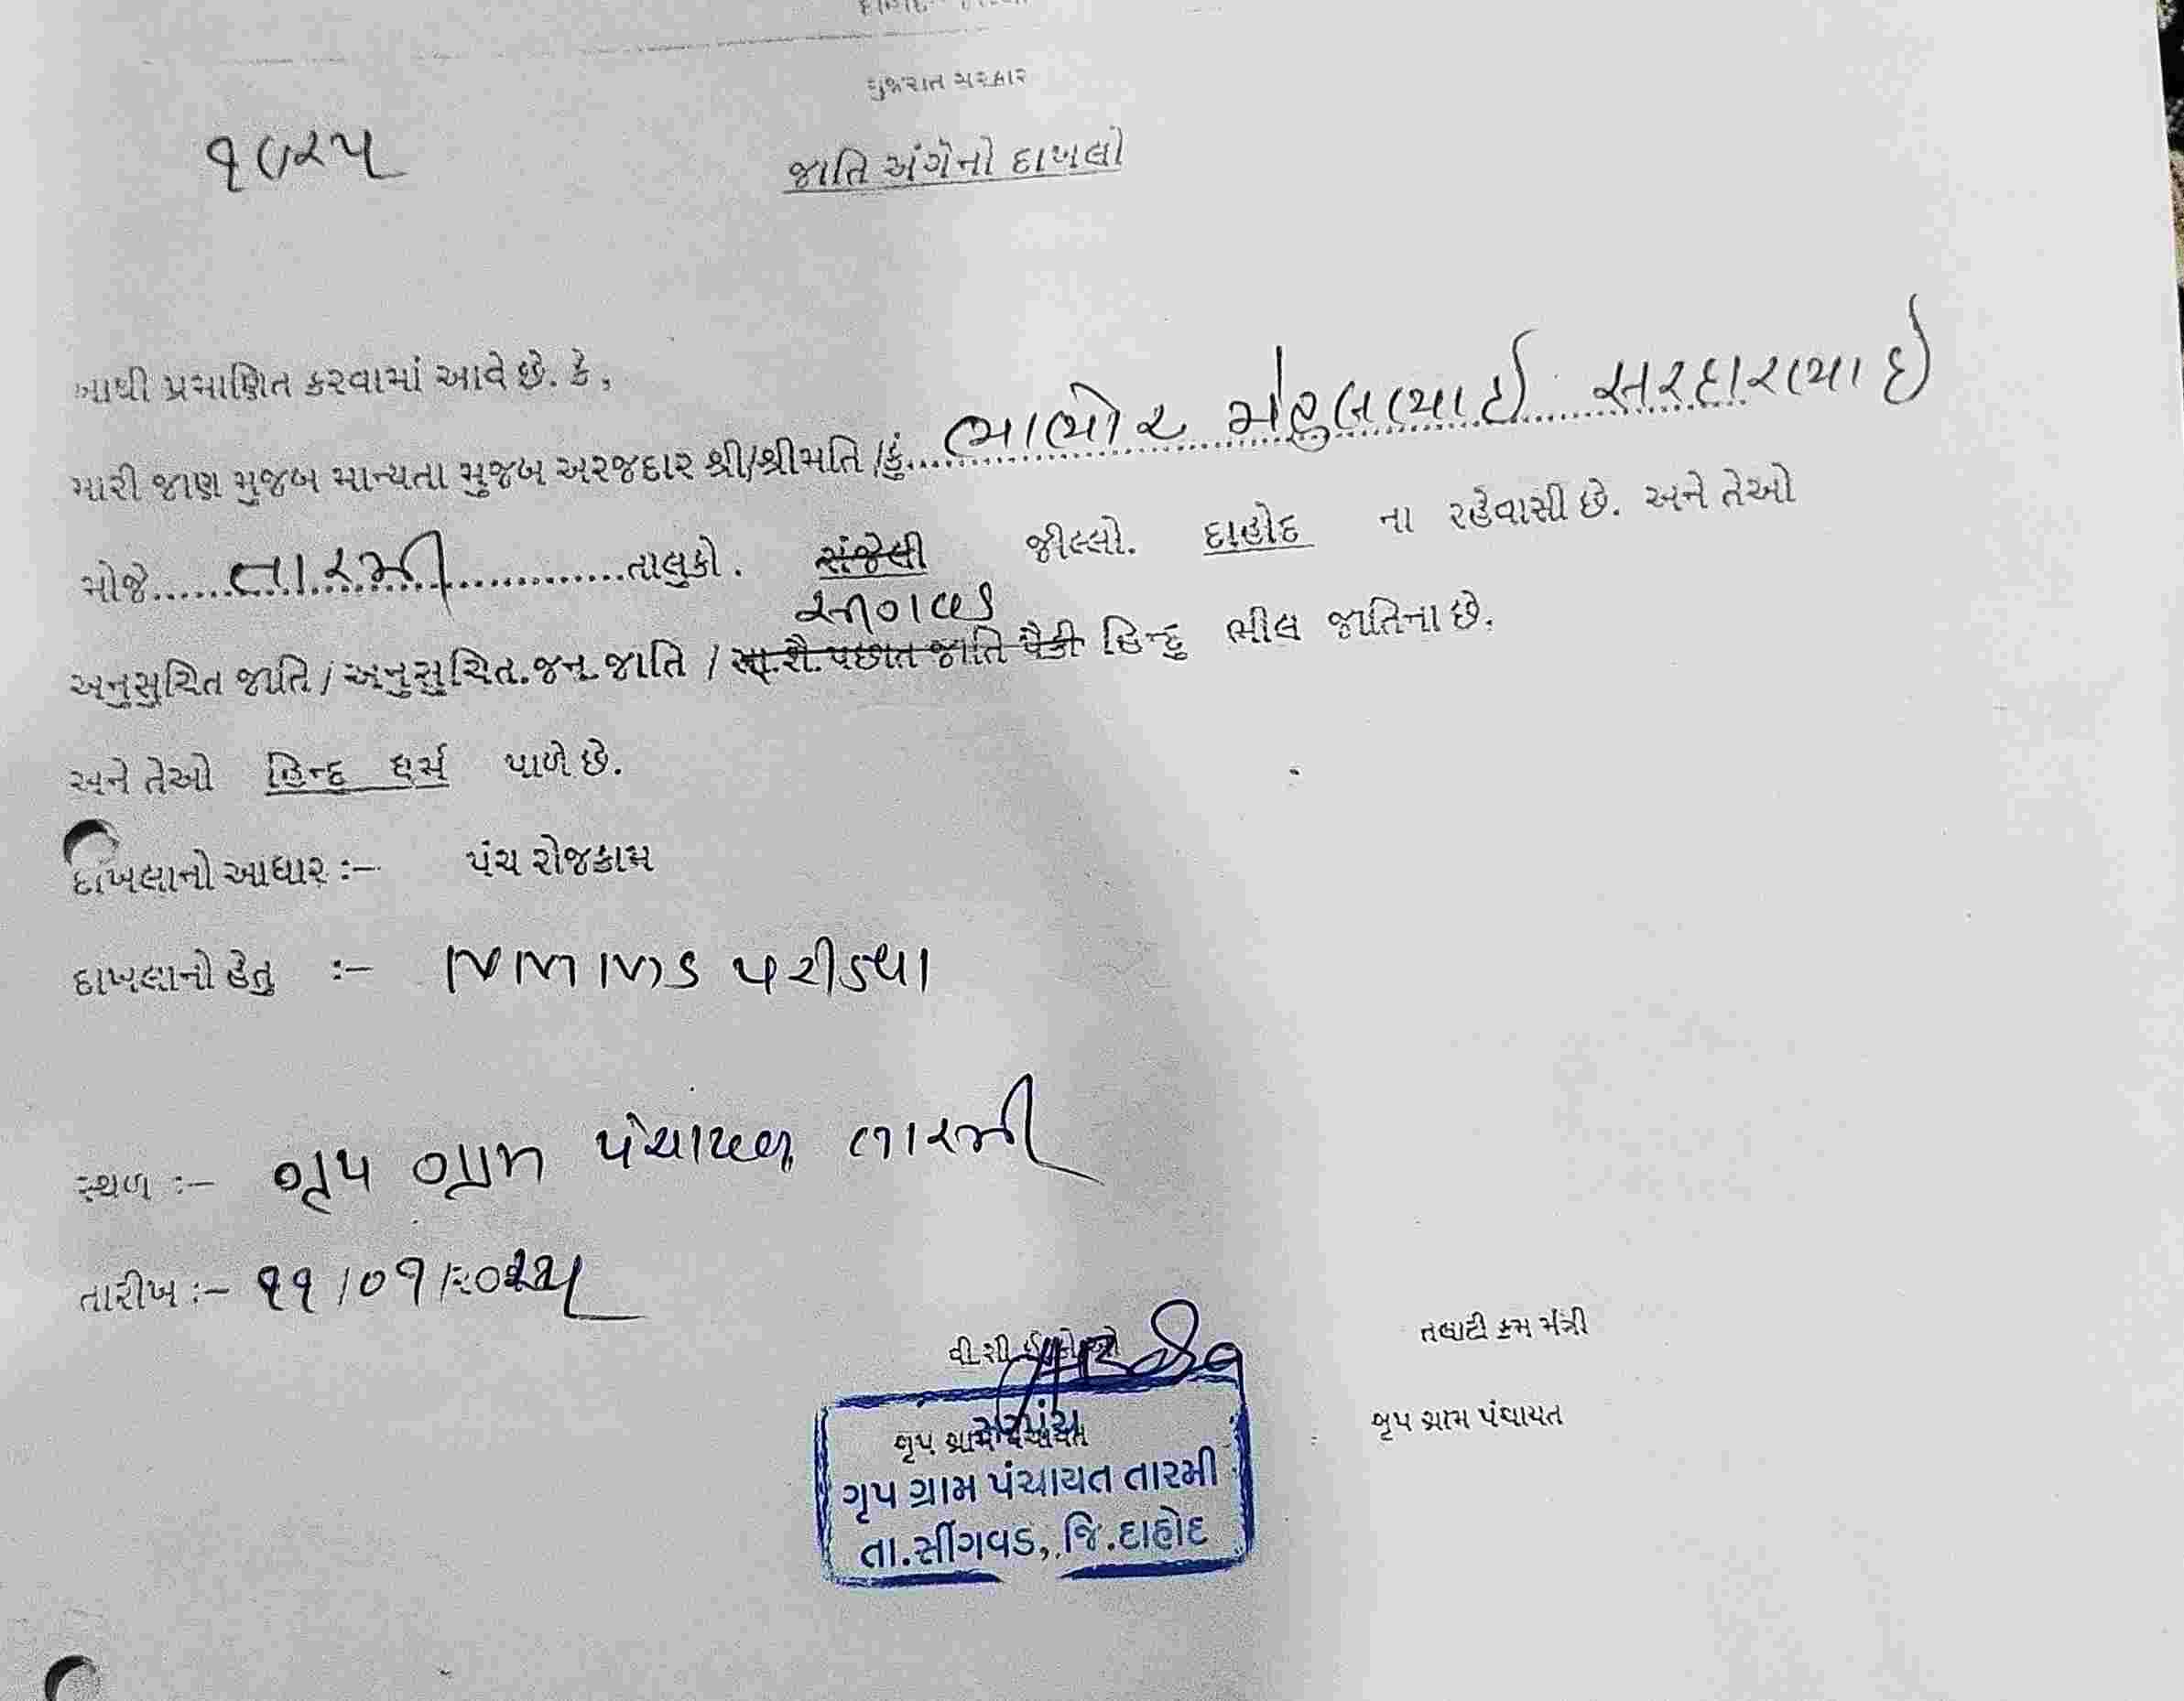 ગુજરાત સરકાર
૧૯૨૫
જાતિ અંગેનો દાખલો
આથી પ્રમાણિત કરવામાં આવે છે. કે,
મારી જાણ મુજબ માન્યતા મુજબ અરજદાર શ્રી/શ્રીમતિ/કું....ભાભોર મેહુલભાઈ સરદારભાઈ
મોજે.....તારમી..............તાલુકો. સંજેલી જીલ્લો. દાહોદ ના રહેવાસી છે. અને તેઓ
સીંગવડ
અનુસુચિત જાતિ/અનુસુચિત.જન.જાતિ / સા.શૈ.પછાત જાતિ પૈકી હિન્દુ ભીલ જાતિના છે.
અને તેઓ હિન્દુ ધર્મ પાળે છે.
દાખલાનો આધાર :- પંચ રોજકામ
દાખલાનો હેતુ :- પરીક્ષા
સ્થળ :- ગૃપ ગ્રામ પંચાયત તારમી
તારીખ :- ૧૧/૦૧/૨૦૨૫
તલાટી કમ મંત્રી
સરપંચ
ગૃપ ગ્રામ પંચાયત
ગૃપ ગ્રામ પંચાયત
ગૃપ ગ્રામ પંચાયત તારમી
તા.સીંગવડ, જિ.દાહોદ